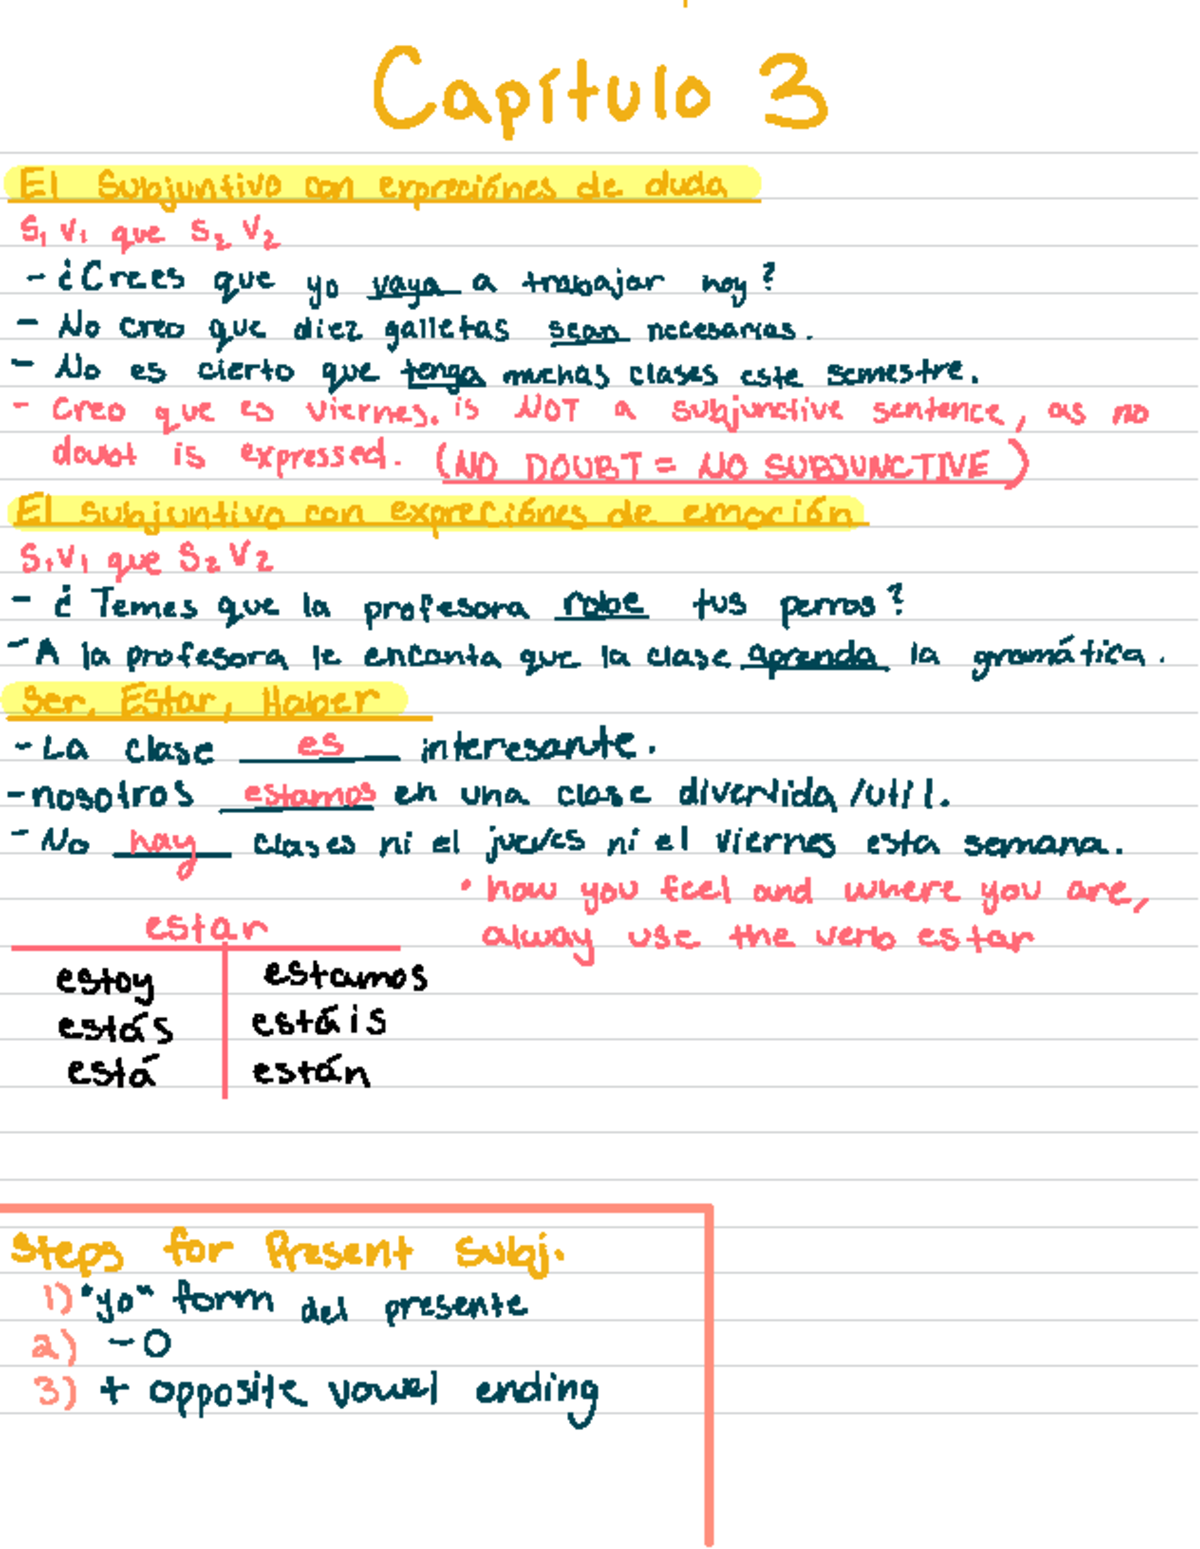 Capítulo 3
El Subjuntivo con expreciónes de duda
S₁ V₁ que S₂ V₂
- ¿Crees que yo vaya a trabajar hoy?
- No creo que diez galletas sean necesarias.
- No es cierto que tenga muchas clases este semestre.
- Creo que es viernes. is NOT a subjunctive sentence, as no
doubt is expressed. (NO DOUBT = NO SUBJUNCTIVE)
El subjuntivo con expreciónes de emoción
S₁V₁ que S₂ V₂
- ¿Temes que la profesora robe tus perros?
- A la profesora le encanta que la clase aprenda la gramática.
Ser, Estar, Haber
- La clase es interesante.
- nosotros estamos en una clase divertida/util.
- No hay clases ni el jueves ni el viernes esta semana.
• how you feel and where you are,
alway use the verb estar
estar
estoy estamos
estás estáis
está están
Steps for Present Subj.
1) "yo" form del presente
2) - O
3) + opposite vowel ending